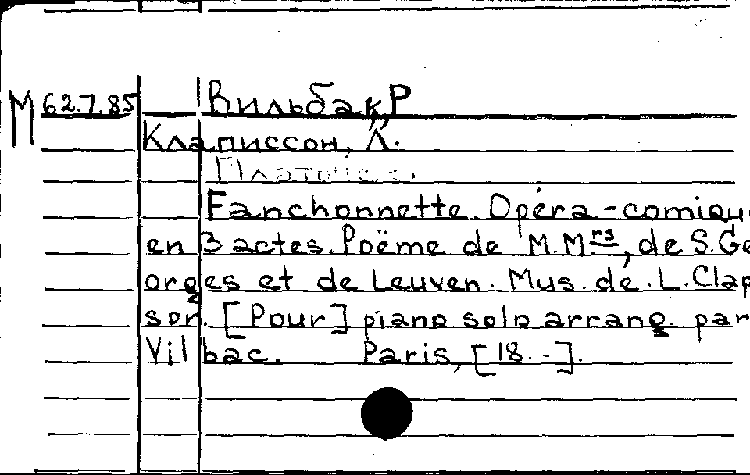 М 62.7.85 Вильбак, Р
Клаписсон, Л.
Fanchonnette. Opéra-comiqu
en 3 actes. Poëme de M.Mrs, de S. Ge
orges et de Leuven. Mus. de. L. Clap
son. [Pour] piano solo arrang. par
Vilbac. Paris, [18..].